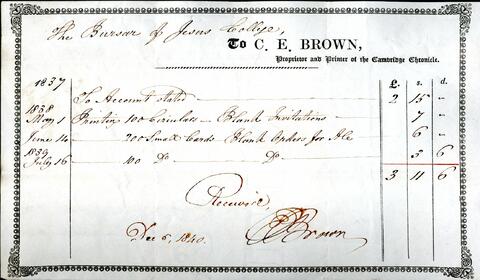 The Bursar of Jesus College,
To C. E. BROWN,
Proprietor and Printer of the Cambridge Chronicle.
1837 £. s. d.
To Account stated — 2 15 –
1838
May 1 Printing 100 Circulars — Blank Invitations — 7 –
June 14 200 Small Cards Blank Orders for Ale 6 –
1839
July 16 — 100 Do — Do. — 3 6
3 11 6
Received,
Dec 6, 1840. CE Brown